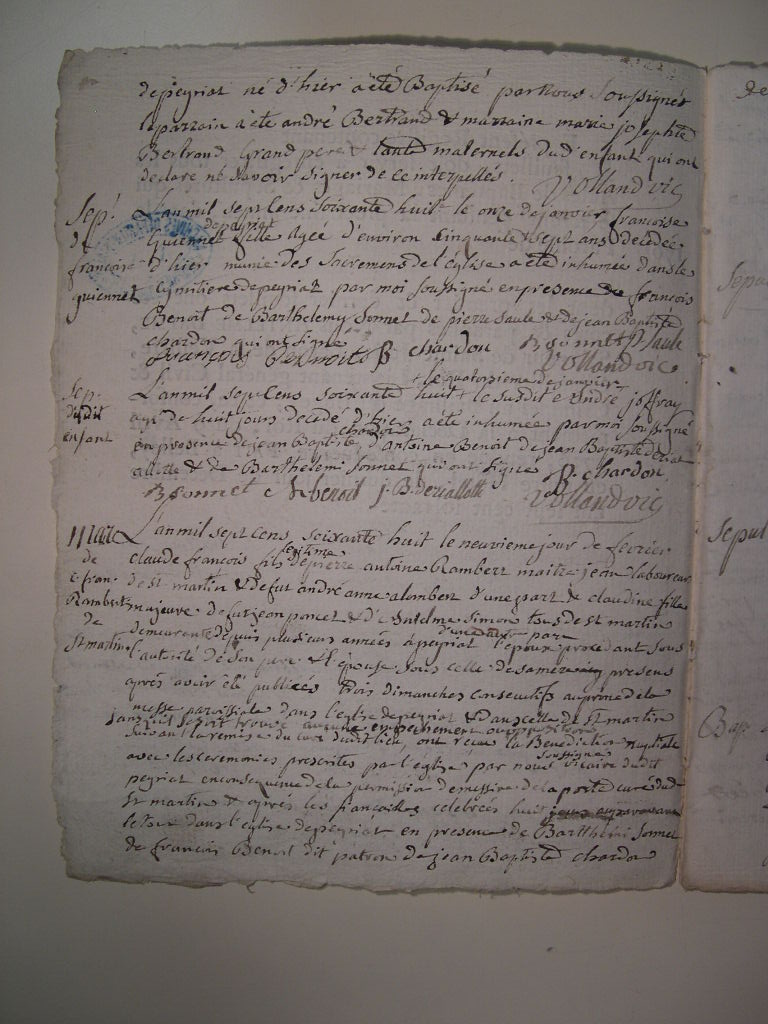 depeyriat né d'hier a été Baptisé par Nous Soussignés
le parrain a été andré Bertrand & marraine marie josephte
Bertrand Grand pere & tante maternels dud enfant qui ont
declaré ne savoir signer de ce interpellés. Vollandvic
Sep! L'an mil sept cens soixante huit le onze de janvier francoise
depeyriat
de Guiennet fille agée d'environ cinquante & sept ans decedée
francoise d'hier munie des Sacremens de l'église a été inhumée dans le
guiennet Cymitiere depeyriat par moi soussigné en presence de francois
Benoit de Barthelemy Sonnet de pierre Saule & de jean Baptiste
chardon qui ont signé
françois Benoit B chardon B Sonnet P Saule
Vollandvic
+ le quatorzieme de janvier
Sep. L'an mil sept cens soixante huit + le susdit andré joffray
dudit agé de huit jours decedé d'hier a été inhumée par moi soussigné
chardon
enfant en presence de jean Baptiste, d'antoine Benoit de jean Baptiste deriat
& de Barthelemi Sonnet qui ont signé B. chardon
B Sonnet benoit j. B. Vollandvic
Mar L'an mil sept cens soixante huit le neuvieme jour de fevrier
legitime
de claude francois fils de pierre antoine Rambert maitre jean laboureur
c fran. de st martin & de fut andré anne alombert d'une part & claudine fille
Rambert majeure de fut jean poncet & d'Antelme Simon tous de st martin
d'une autre part
de demeurente depuis plusieurs années a peyriat l'epoux procedant sous
St martin l'autorité de son pere & l'epouse sous celle de sa mere presens
après avoir été publiées trois dimanches consecutifs au prone de la
messe paroissiale dans l'eglise depeyriat & dans celle de St martin
sans qu'il se soit trouvé aucune empechement ou opposition
suivant la remise du curé dudit lieu, ont reçue la Benediction nuptiale
soussigné
avec les ceremonies prescrites par l'eglise par nous vicaire dudit
peyriat en consequence de la permission de messire de la porte curé dud
St martin & après les fiançailles celebrées huit jours auparavant
dans l'eglise depeyriat en presence de Barthlemi Sonnet
de francois Benoit dit patron de jean Baptiste chardon
de
Sepu
Sepul
Bap.